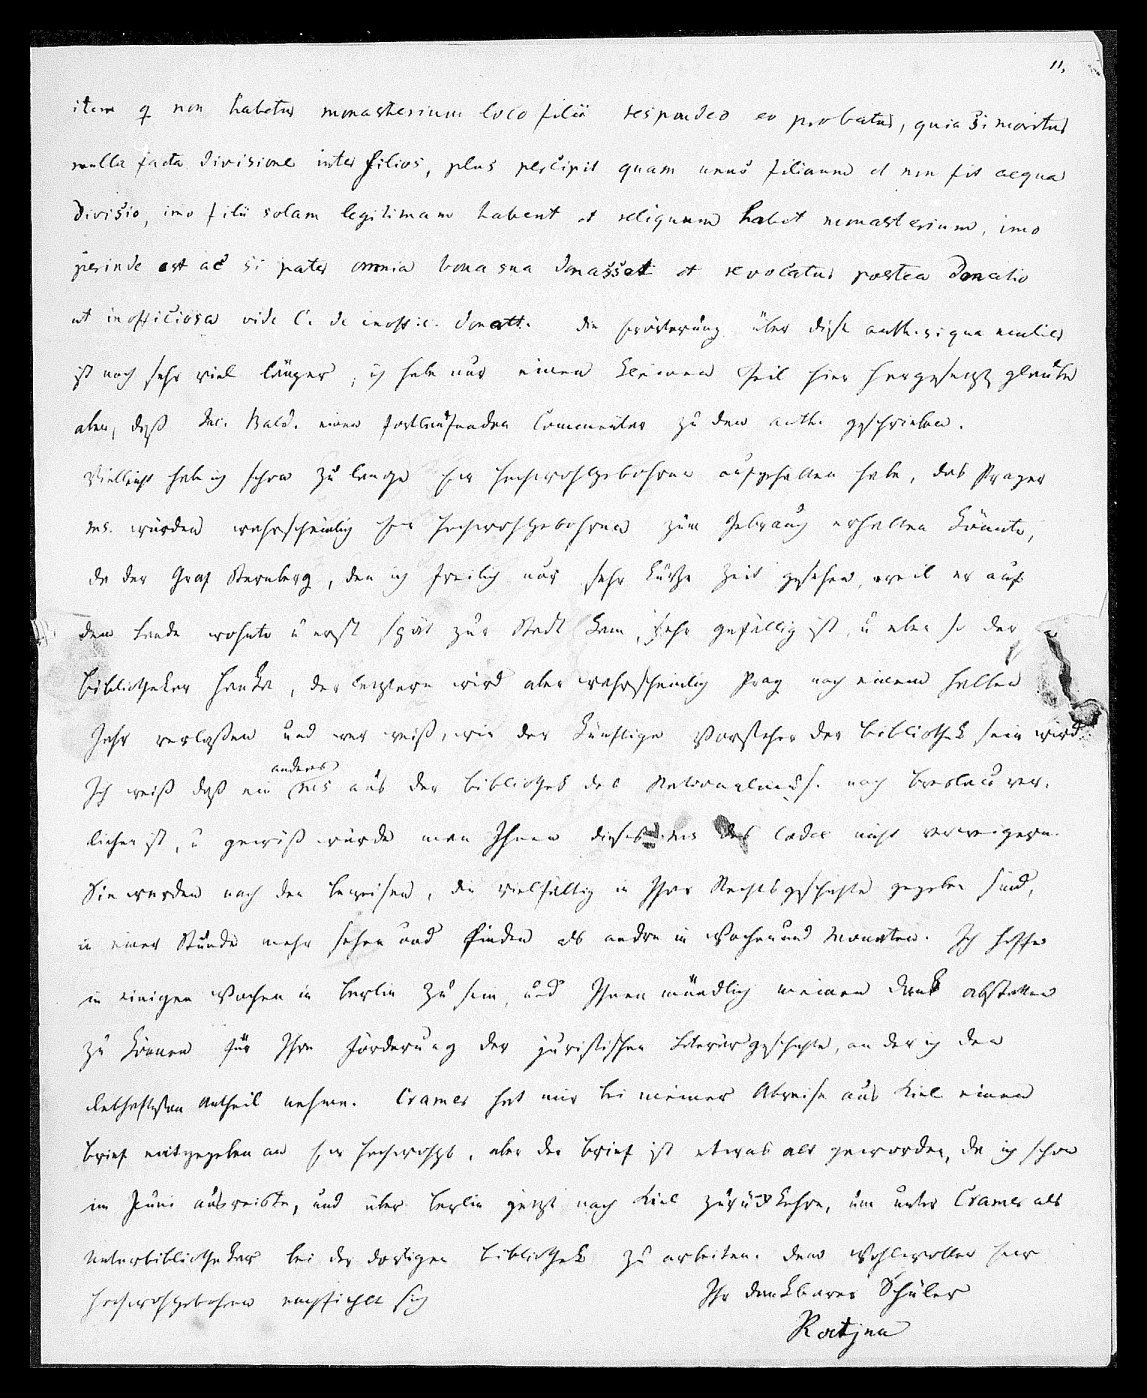 11,
item q non habetur monasterium loco filii respondeo eo probatur, quia si moritur
nulla facta divisione inter filios, plus percipit quam unus filiorum et non fit aequa
divisio, imo filii solam legitimam habent et reliquum habet monasterium, imo
perinde est ac si pater omnia bona sua donasset et revocatur postea donatio
ut inofficiosa vide C. de inoffic. donatt. die Erörterung über diese auth. si qua mulier
ist noch sehr viel länger, ich habe nur einen kleinen Theil hier hergesetzt, glaube
aber, daß Jac. Bald. einen fortlaufenden Commentar zu den auth. geschrieben.
Vielleicht hab ich schon zu lange Ew Hochwohlgebohren aufgehalten habe, das Prager
ms. würden wahrscheinlich Ew Hochwohlgebohren zum Gebrauch erhalten können,
da der Graf Sternberg, den ich freilich nur sehr kurze Zeit gesehen, weil er auf
dem Lande wohnte u erst spät zur Stadt kam, sehr gefällig ist, u eben so der
Bibliothekar Hanka, der letztere wird aber wahrscheinlich Prag nach einem halben
Jahr verlaßen und wer weiß, wie der künftige Vorsteher der Bibliothek sein wird.
Ich weiß daß ein anderes ms aus der Bibliothek des Nationalmus. nach Breslau ver-
liehen ist, u gewiß würde man Ihnen dieses ms des Codex nicht verweigern.
Sie werden nach den Beweisen, die vielfältig in Ihrer Rechtsgeschichte gegeben sind,
in einer Stunde mehr sehen und finden als andre in Wochen und Monaten. Ich hoffe
in einigen Wochen in Berlin zu sein, und Ihnen mündlich meinen Dank abstatten
zu können für Ihre Förderung der juristischen Literärgeschichte, an der ich den
lebhaftesten Antheil nehme. Cramer hat mir bei meiner Abreise aus Kiel einen
Brief mitgegeben an Ew Hochwohlgb, aber der Brief ist etwas alt geworden, da ich schon
im Juni ausreiste, und über Berlin jetzt nach Kiel zurückkehre, um unter Cramer als
Unterbibliothekar bei der dortigen Bibliothek zu arbeiten. Dem Wohlwollen Euer
Hochwohlgebohren empfiehlt sich
Ihr dankbarer Schüler
Ratjen